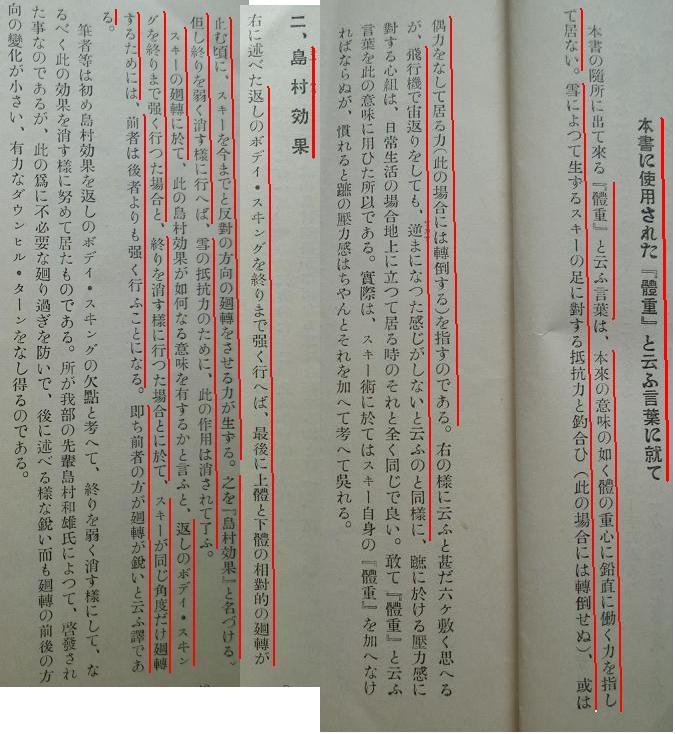 本書に使用された『體重』と云ふ言葉に就て
本書の隨所に出て來る『體重』と云ふ言葉は、本來の意味の如く體の重心に鉛直に働く力を指し
て居ない。雪によつて生ずるスキーの足に對する抵抗力と釣合ひ（此の場合には轉倒せぬ）、或は
偶力をなして居る力（此の場合には轉倒する）を指すのである。右の樣に云ふと甚だ六ヶ敷く思へる
が、飛行機で宙返りをしても、逆まになつた感じがしないと云ふのと同樣に、蹠に於ける壓力感に
對する心組は、日常生活の場合地上に立つて居る時のそれと全く同じで良い。敢て『體重』と云ふ
言葉を此の意味に用ひた所以である。實際は、スキー術に於てはスキー自身の『體重』を加へなけ
ればならぬが、慣れると蹠の壓力感はちやんとそれを加へて考へて吳れる。
二、島村効果
右に述べた返しのボデイ・スヰングを終りまで强く行へば、最後に上體と下體の相對的の廻轉が
止む頃に、スキーを今までと反對の方向の廻轉をさせる力が生ずる。之を『島村効果』と名づける。
但し終りを弱く消す樣に行へば、雪の抵抗力のために、此の作用は消されて了ふ。
スキーの廻轉に於て、此の島村効果が如何なる意味を有するかと言ふと、返しのボデイ・スヰン
グを終りまで强く行つた場合と、終りを消す樣に行つた場合とに於て、スキーが同じ角度だけ廻轉
するためには、前者は後者よりも强く行ふことになる。卽ち前者の方が廻轉が銳いと云ふ譯であ
る。
筆者等は初め島村効果を返しのボデイ・スヰングの欠點と考へて、終りを弱く消す樣にして、な
るべく此の効果を消す樣に努めて居たものである。所が我部の先輩島村和雄氏によつて、啓發され
た事なのであるが、此の爲に不必要な廻り過ぎを防いで、後に述べる樣な銳い而も廻轉の前後の方
向の變化が小さい、有力なダウンヒル・ターンをなし得るのである。